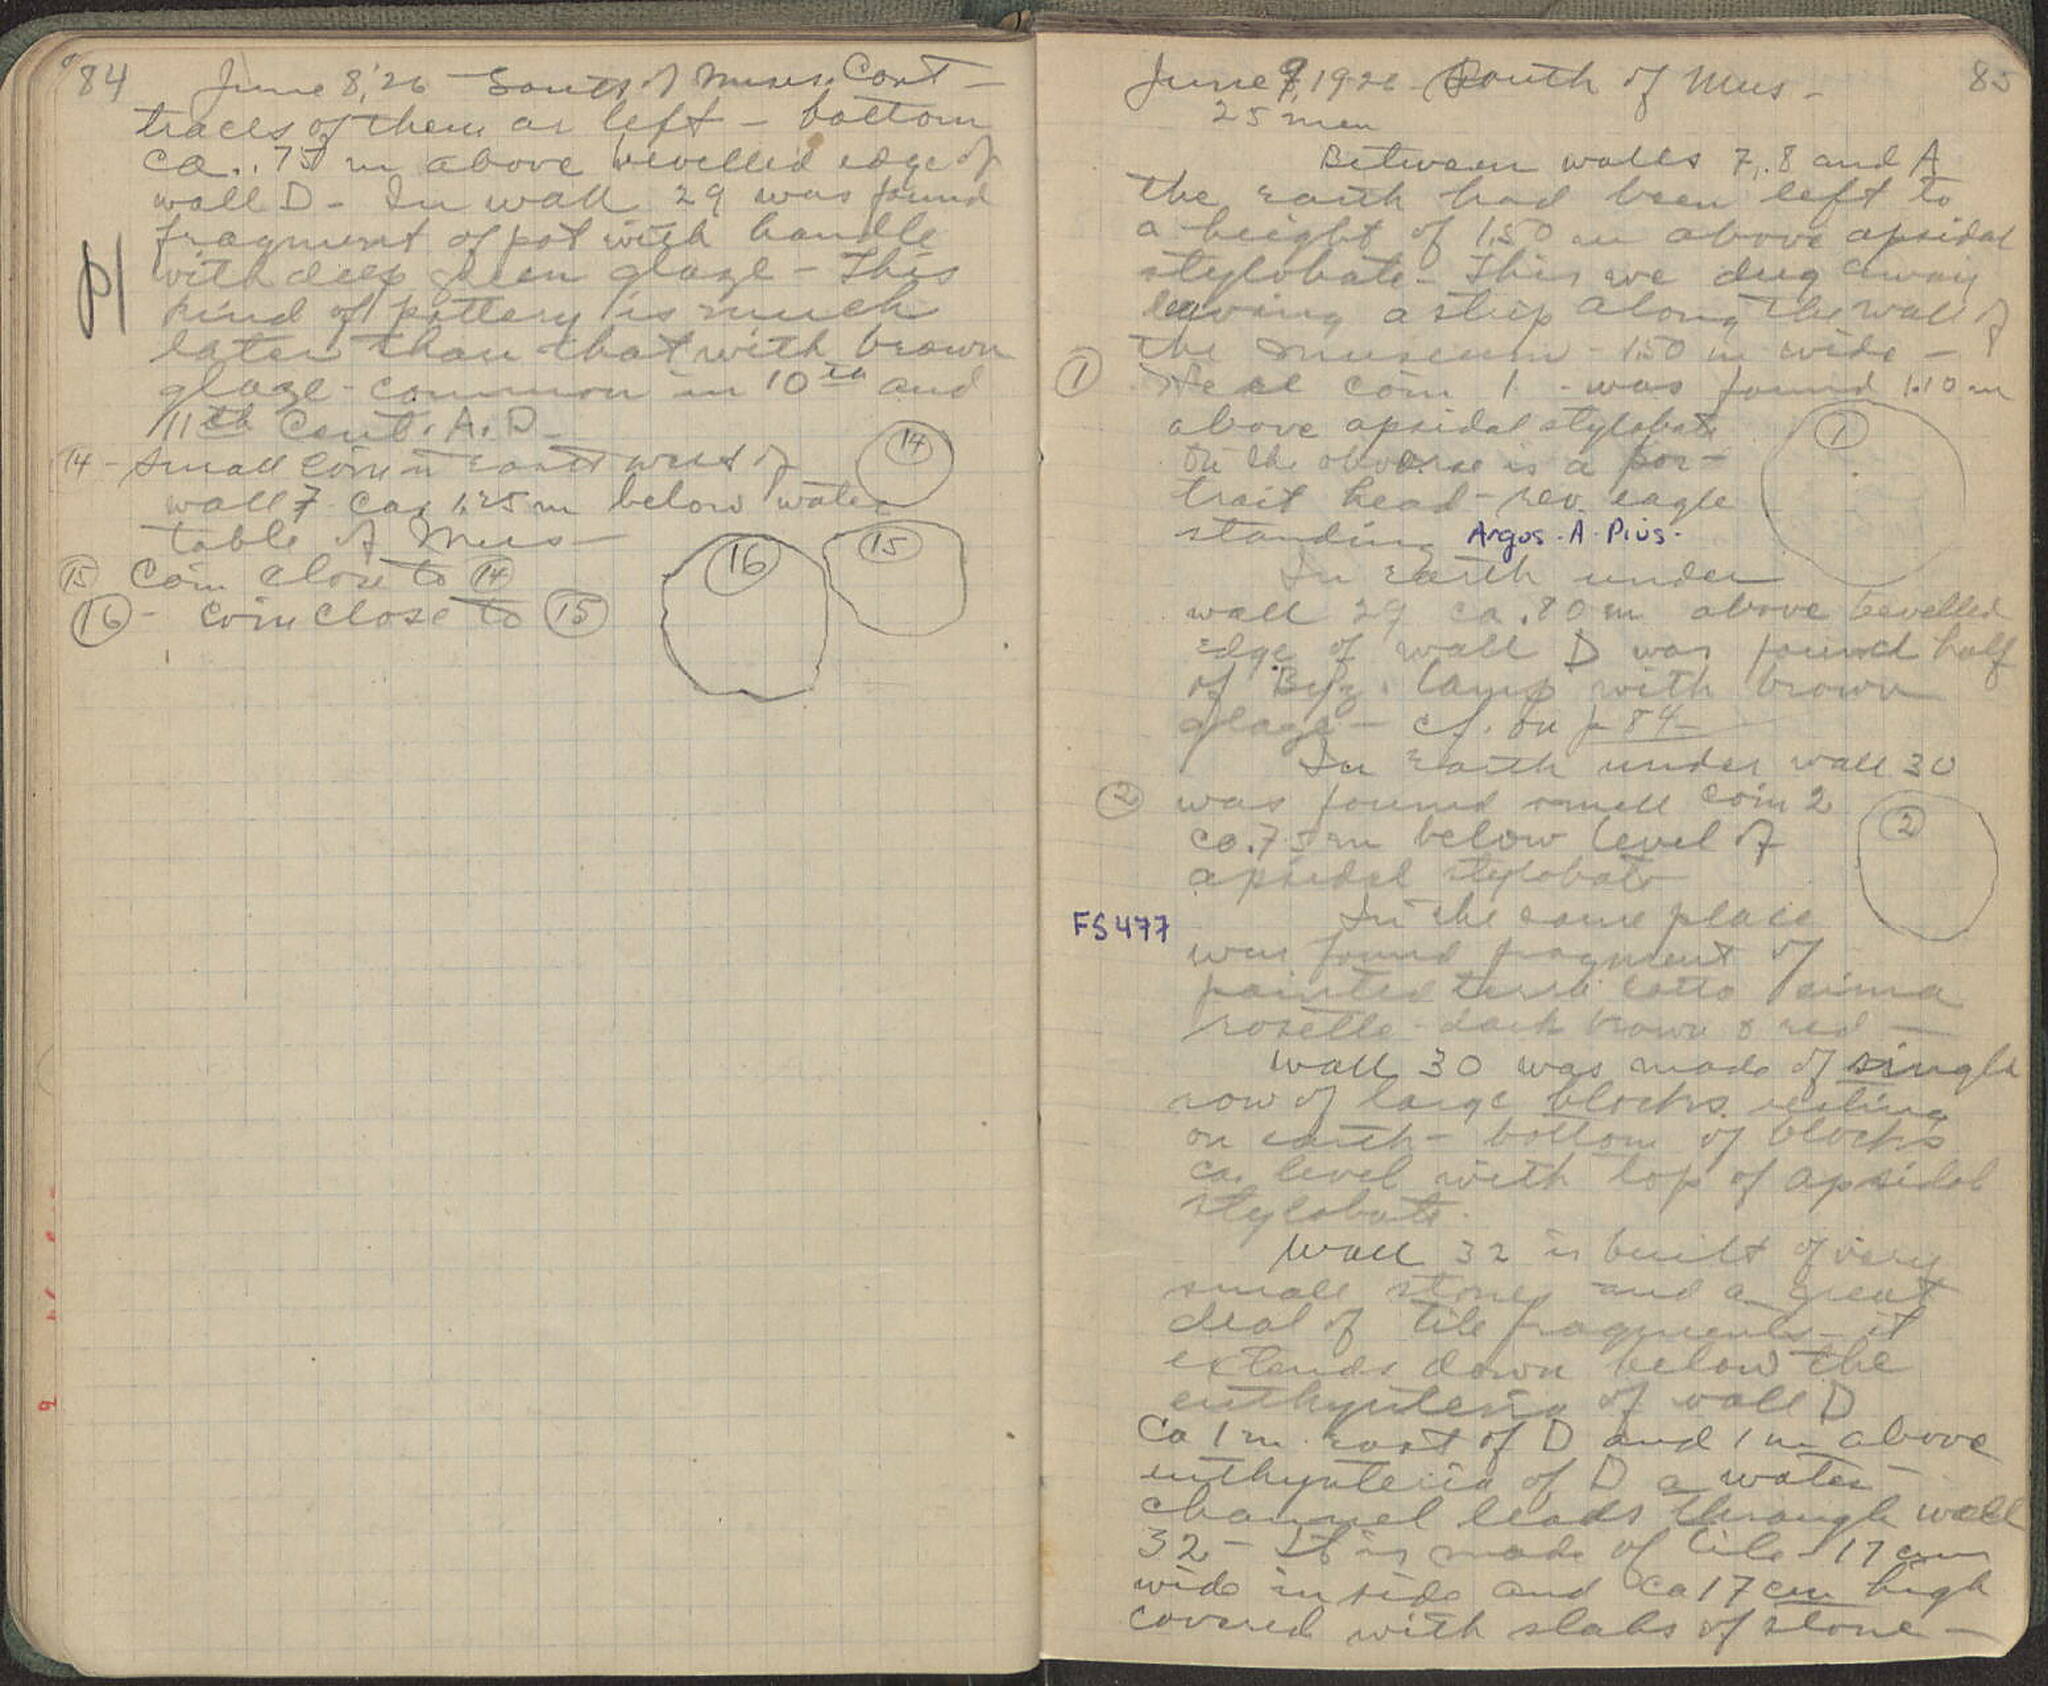 84 June 8, '26 - South of Mus. Cont -
traces of them are left - bottom
ca. .75 m above bevelled edge of
wall D - In wall 29 was found
fragment of pot with handle
with deep green glaze - This
kind of pottery is much
later than that with brown
glaze - common in 10th and
11th Cent. A.D. -
14 - small coin in earth west of
wall 7 ca. 1.25 m below water
table of Mus -
15 coin close to 14
16 - coin close to 15
14
15
16
June 9, 1926 South of Mus - 85
25 men
Between walls 7, 8 and A
the earth had been left to
a height of 1.50 m above apsidal
stylobate - This we dug away
leaving a strip along the wall of
the museum - 1.50 m wide -
1 Here coin 1 - was found 1.10 m
above apsidal stylobate
On the obverse is a por-
trait head - rev. eagle
standing Argos. A. Pius.
1
In earth under
wall 29 ca .80 m above bevelled
edge of wall D was found half
of Byz. lamp with brown
glaze - cf. on p 84 -
In earth under wall 30
2 was found small coin 2
ca .75 m below level of
apsidal stylobate
2
FS 477 In the same place
was found fragment of
painted terra cotta sima
rosette - dark brown & red -
Wall 30 was made of single
row of large blocks resting
on earth - bottom of blocks
ca. level with top of apsidal
stylobate.
Wall 32 is built of very
small stones and a great
deal of tile fragments - it
extends down below the
euthynteria of wall D
Ca 1 m east of D and 1 m above
euthynteria of D a water
channel leads through wall
32 - It is made of tile - 17 cm
wide inside and ca 17 cm high
covered with slabs of stone -